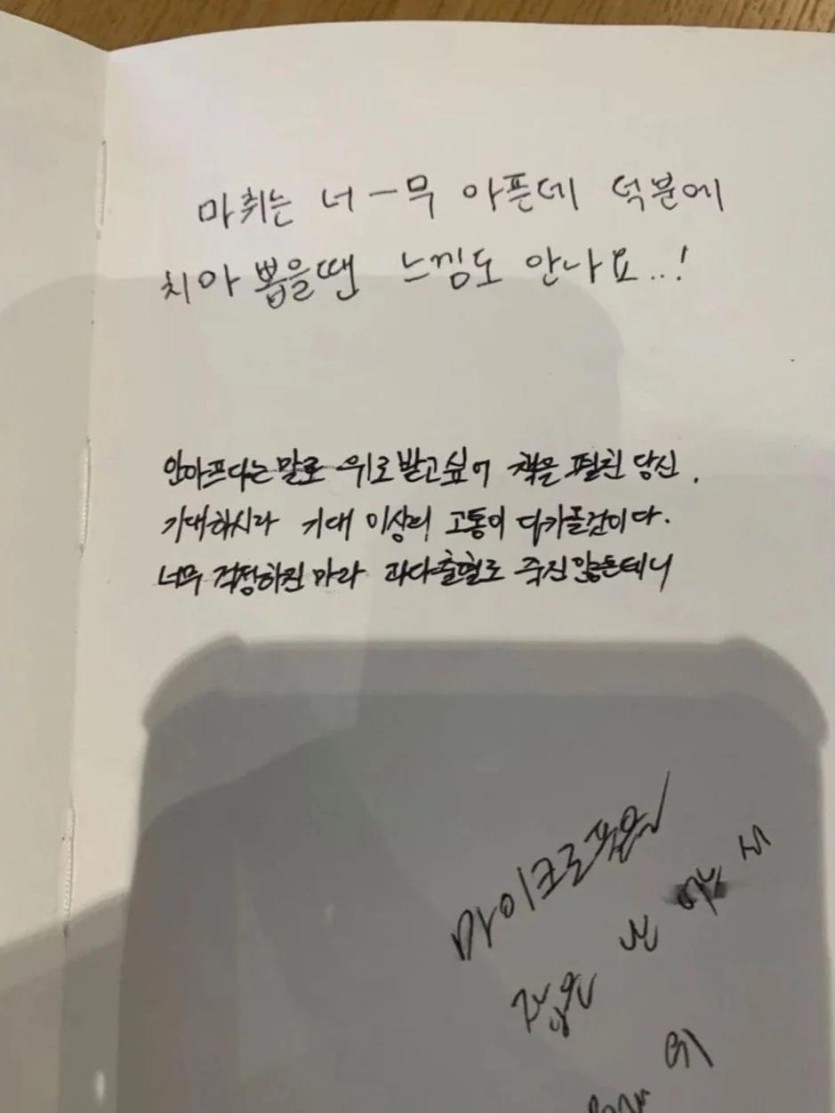 마취는 너ㅡ무 아픈데 덕분에
치아 뽑을땐 느낌도 안나요..!
안아프다는 말로 위로 받고싶어 책을 펼친 당신.
기대하시라 기대 이상의 고통이 다가올것이다.
너무 걱정하진 마라 과다출혈로 죽진 않을테니
마이크로폰을
잡은 난